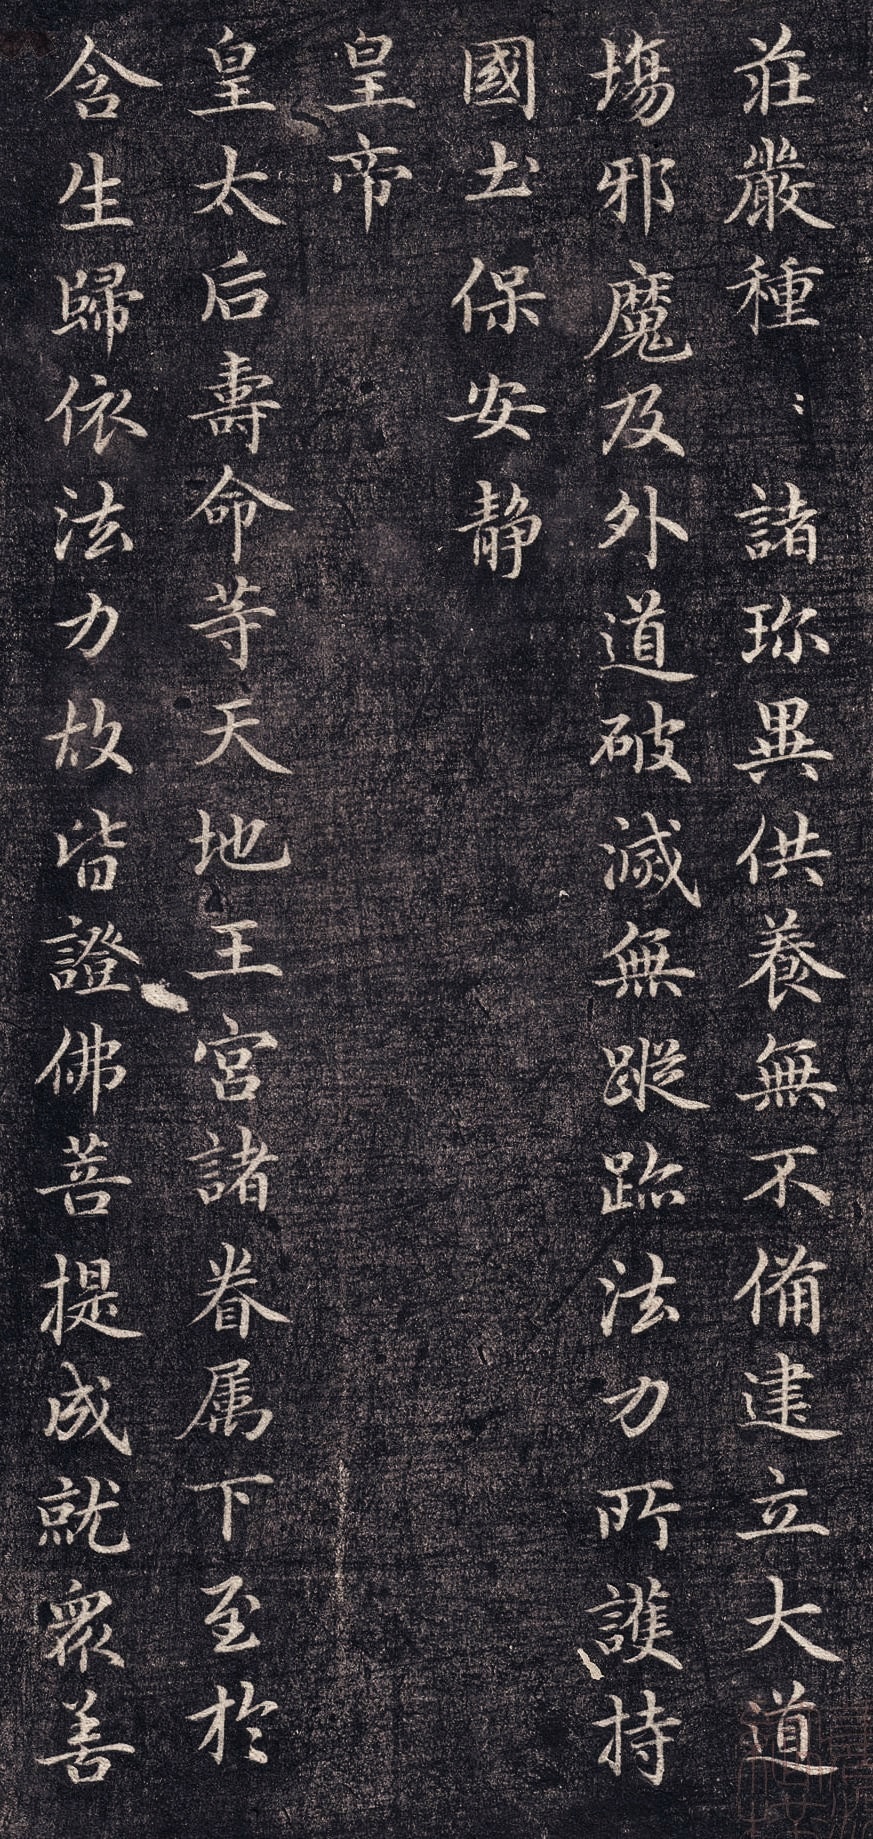 莊嚴種〻諸珎異供養無不備建立大道
塲邪魔及外道破滅無蹤跡法力所護持
國土保安静
皇帝
皇太后壽命等天地王宫諸眷属下至於
含生歸依法力故皆證佛菩提成就衆善